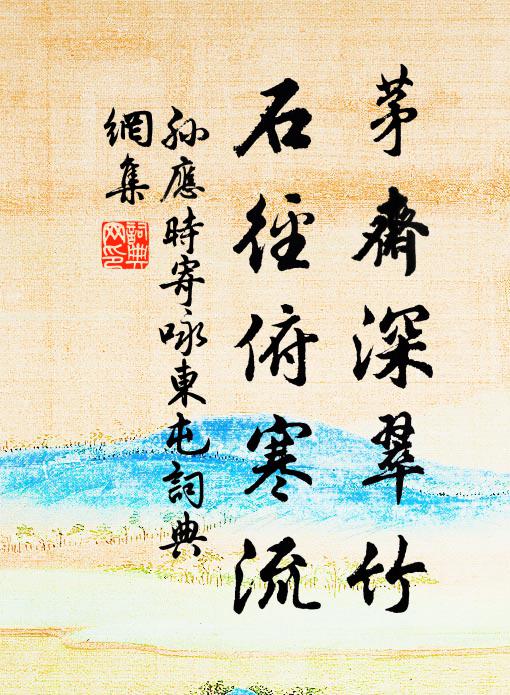 茅齋深翠竹
石徑俯寒流
孫應時寄咏東屯詞典
網集
詞典
网印